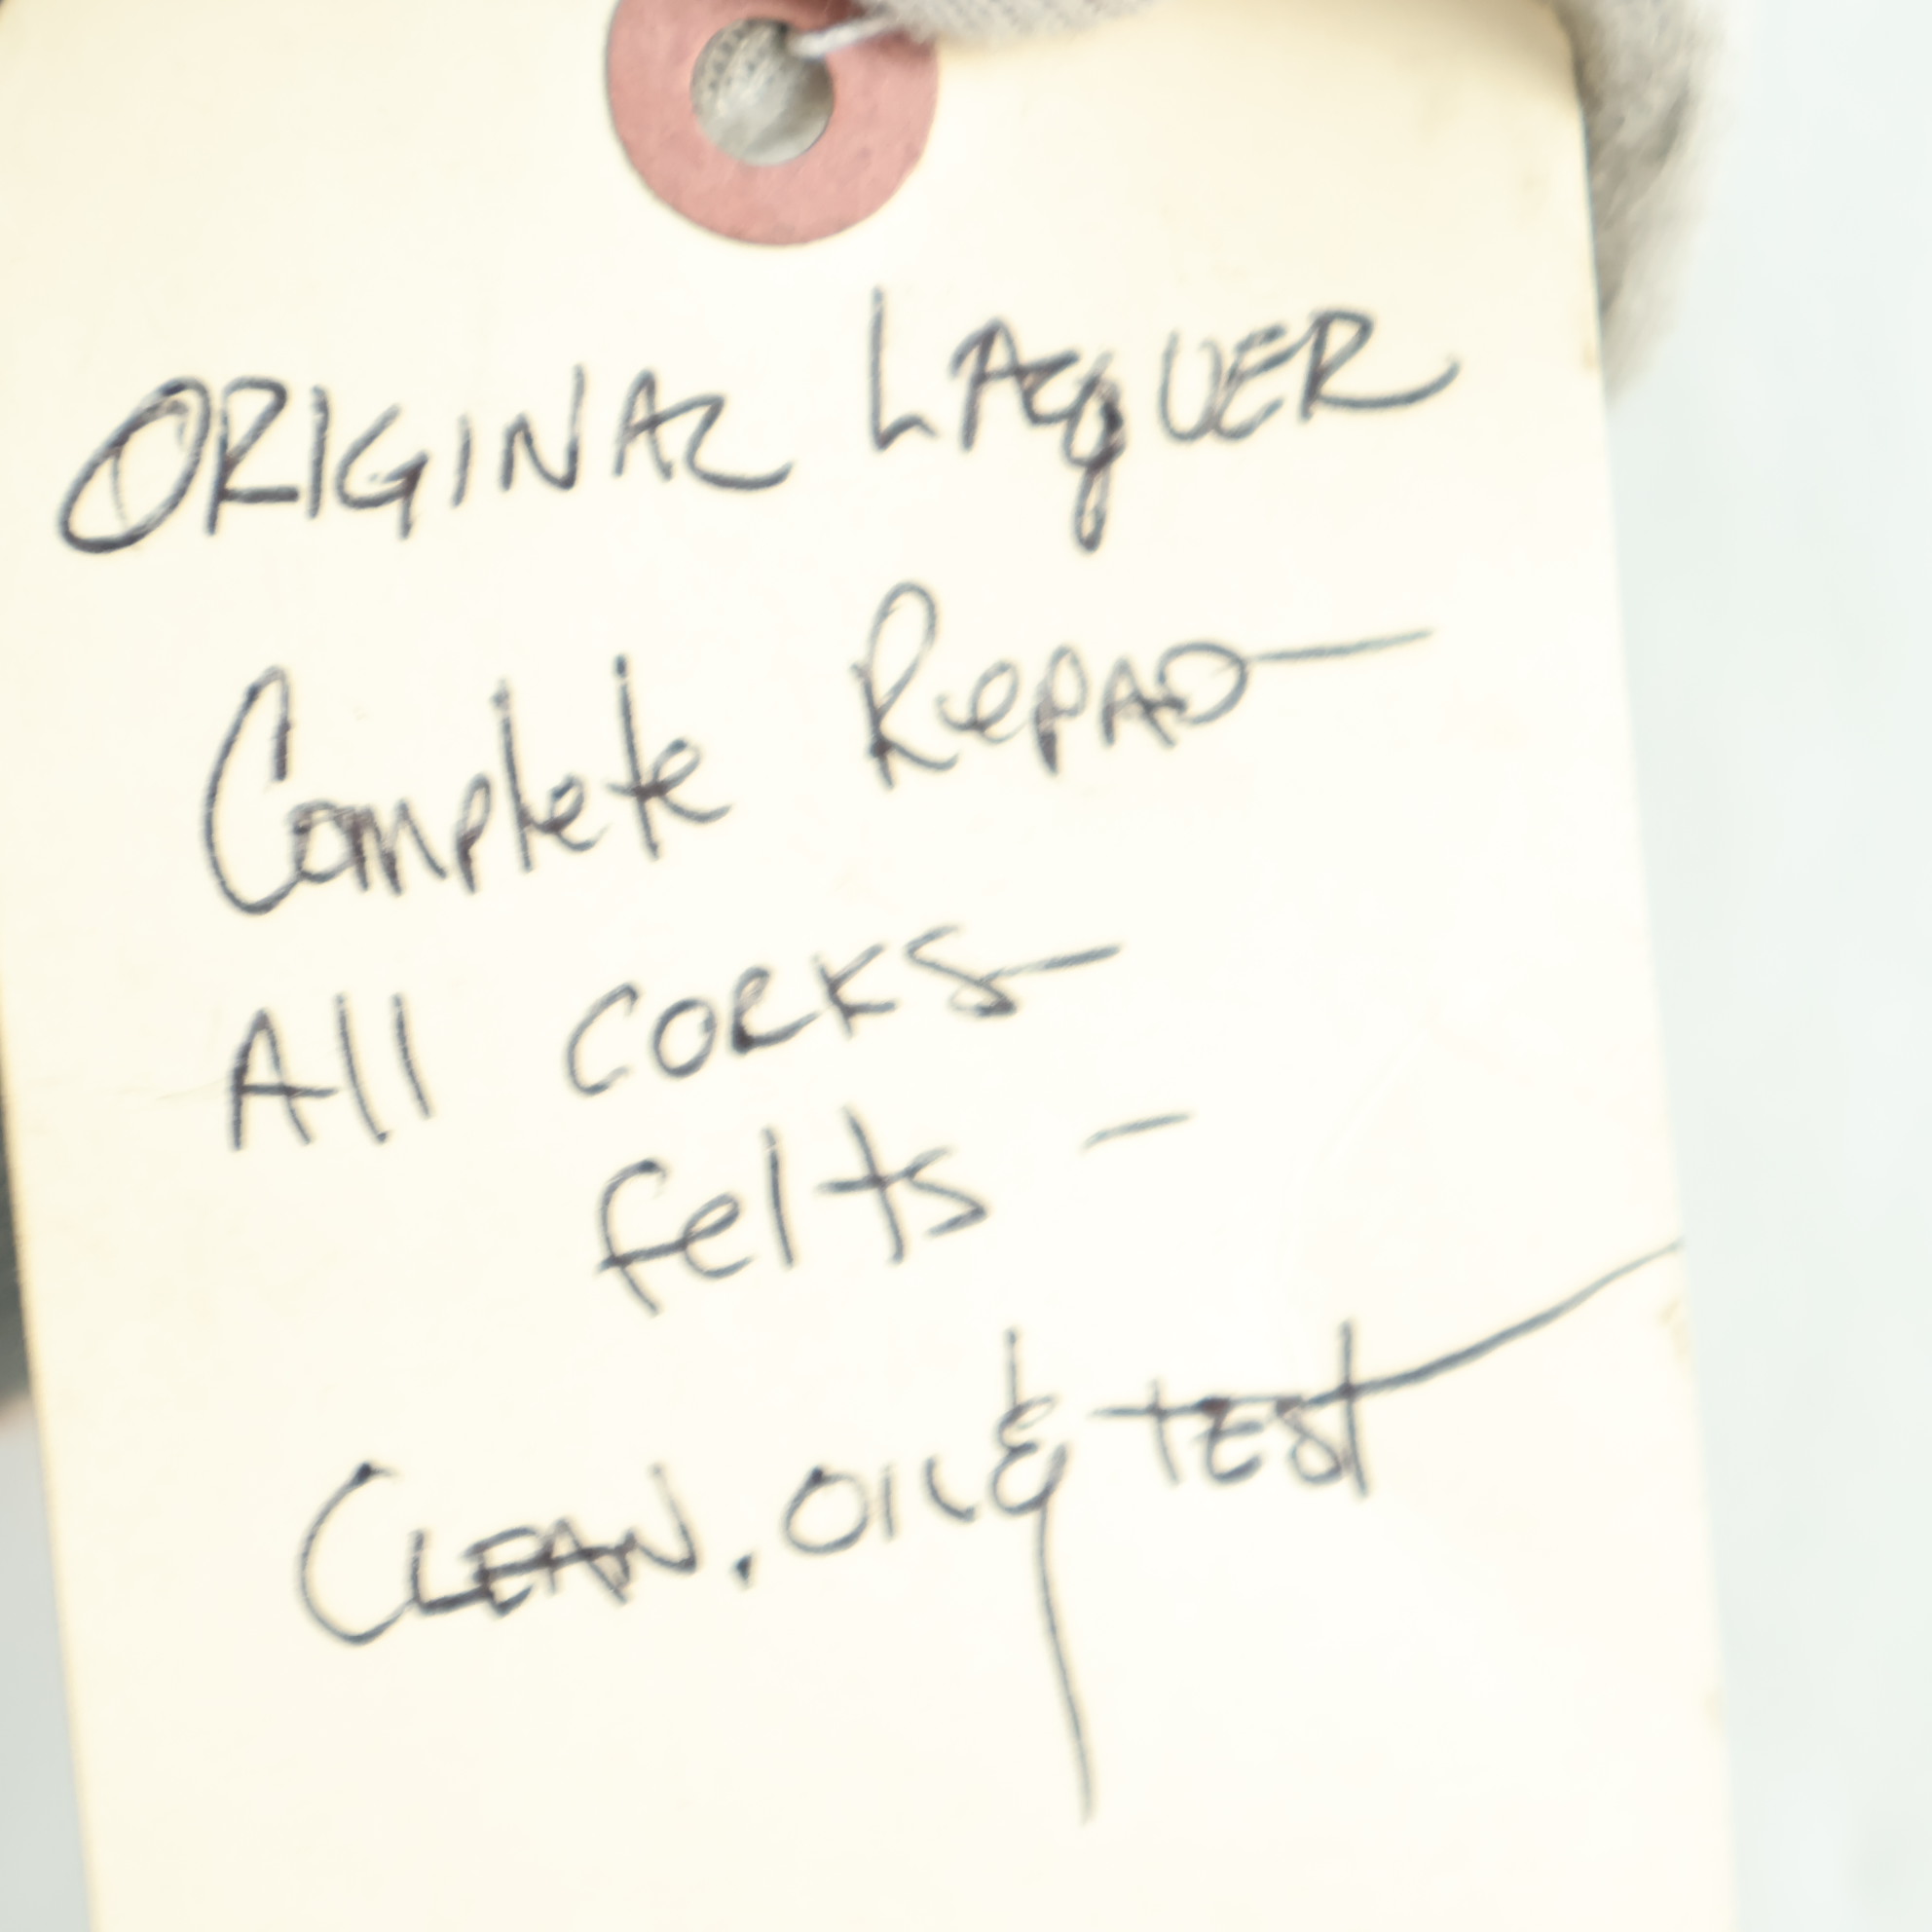 ORIGINAL LAQUER
Complete RePAD
All CORKS
felts -
CLEAN. OIL & TEST